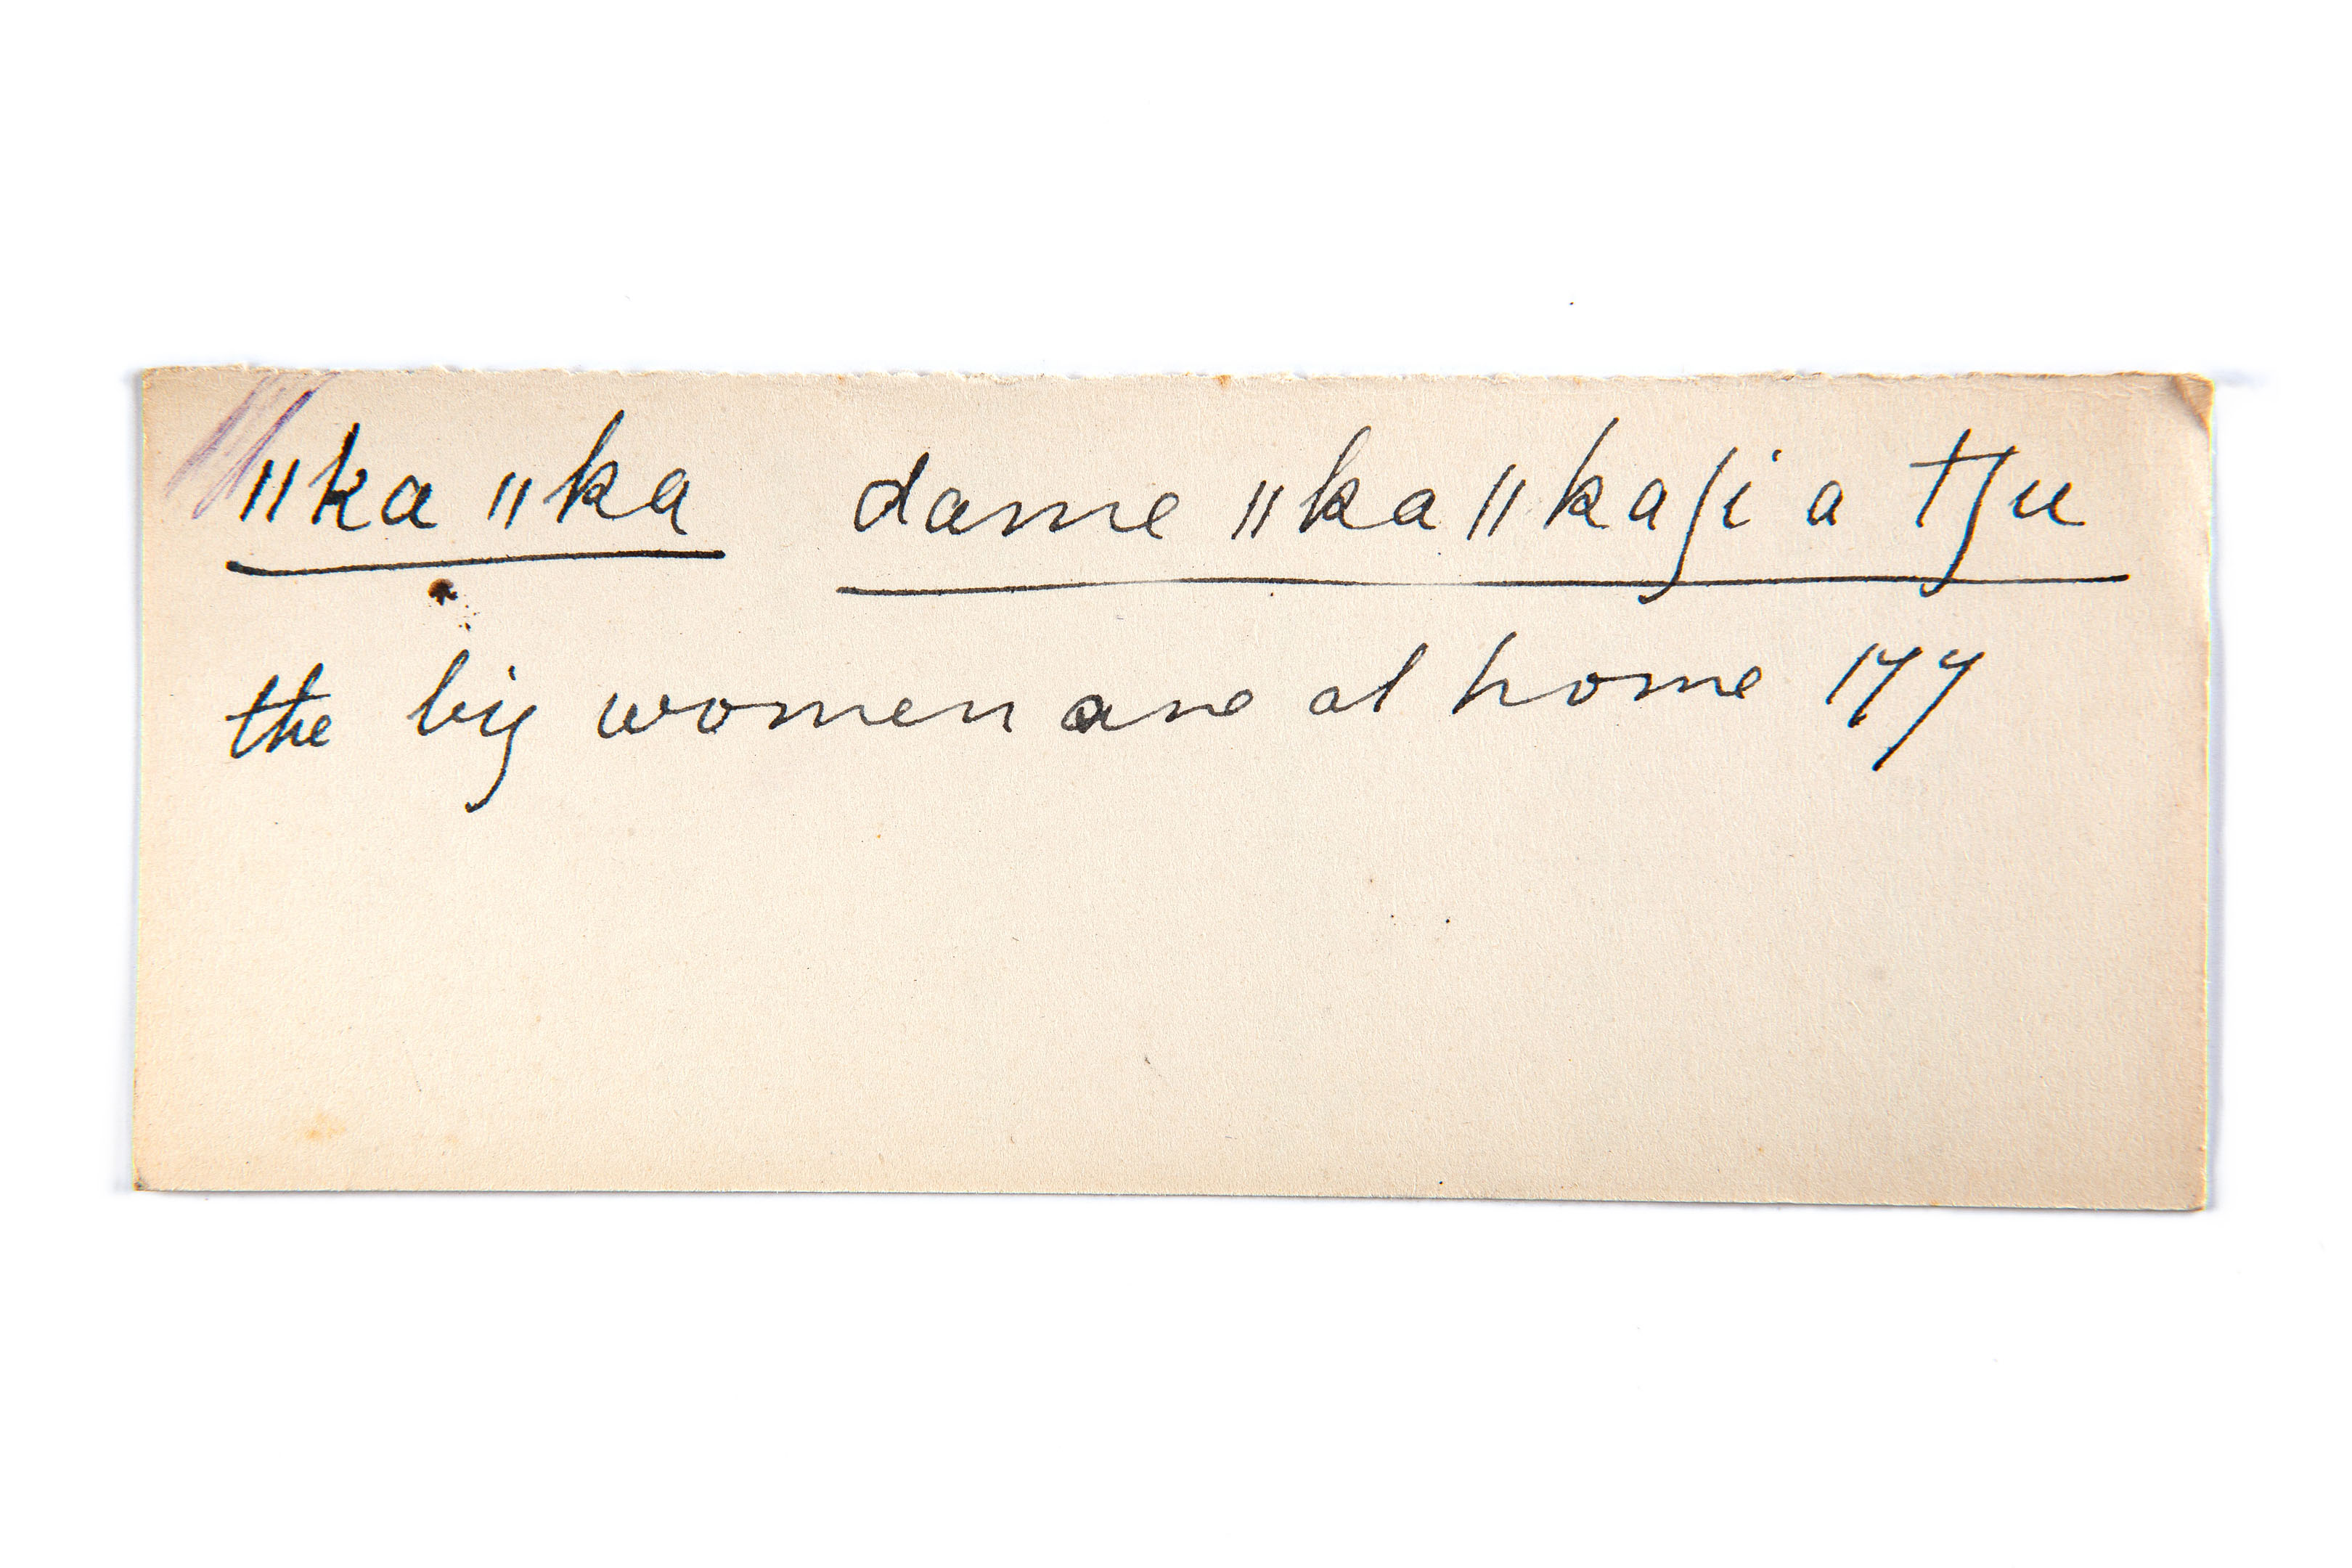 ǁka ǁka dame ǁka ǁkaʃi a tʃu
the big women are at home 177